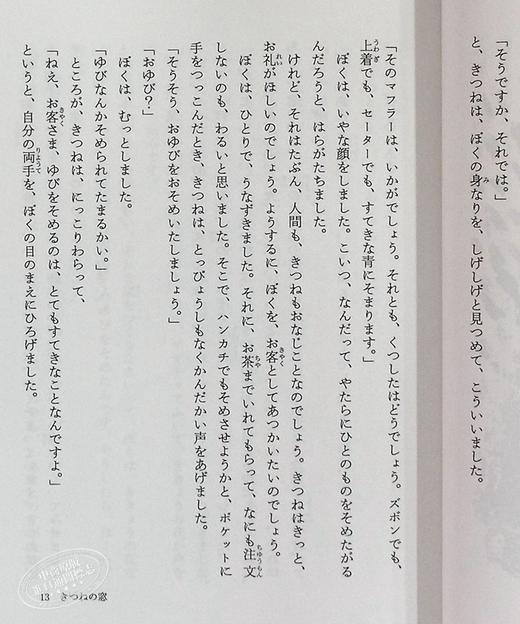 「そうですか、それでは。」
と、きつねは、ぼくの身なりを、しげしげと見つめて、こういいました。
「そのマフラーは、いかがでしょう。それとも、くつしたはどうでしょう。ズボンでも、
上着でも、セーターでも、すてきな青にそまります。」
ぼくは、いやな顔をしました。こいつ、なんだって、やたらにひとのものをそめたがる
んだろうと、はらがたちました。
けれど、それはたぶん、人間も、きつねもおなじことなのでしょう。きつねはきっと、
お礼がほしいのでしょう。ようするに、ぼくを、お客としてあつかいたいのでしょう。
ぼくは、ひとりで、うなずきました。それに、お茶までいれてもらって、なにも注文
しないのも、わるいと思いました。そこで、ハンカチでもそめさせようかと、ポケットに
手をつっこんだとき、きつねは、とっぴょうしもなくかんだかい声をあげました。
「そうそう、おゆびをおそめいたしましょう。」
「おゆび？」
ぼくは、むっとしました。
「ゆびなんかそめられてたまるかい。」
ところが、きつねは、にっこりわらって、
「ねえ、お客さま、ゆびをそめるのは、とてもすてきなことなんですよ。」
というと、自分の両手を、ぼくの目のまえにひろげました。
13 きつねの窓